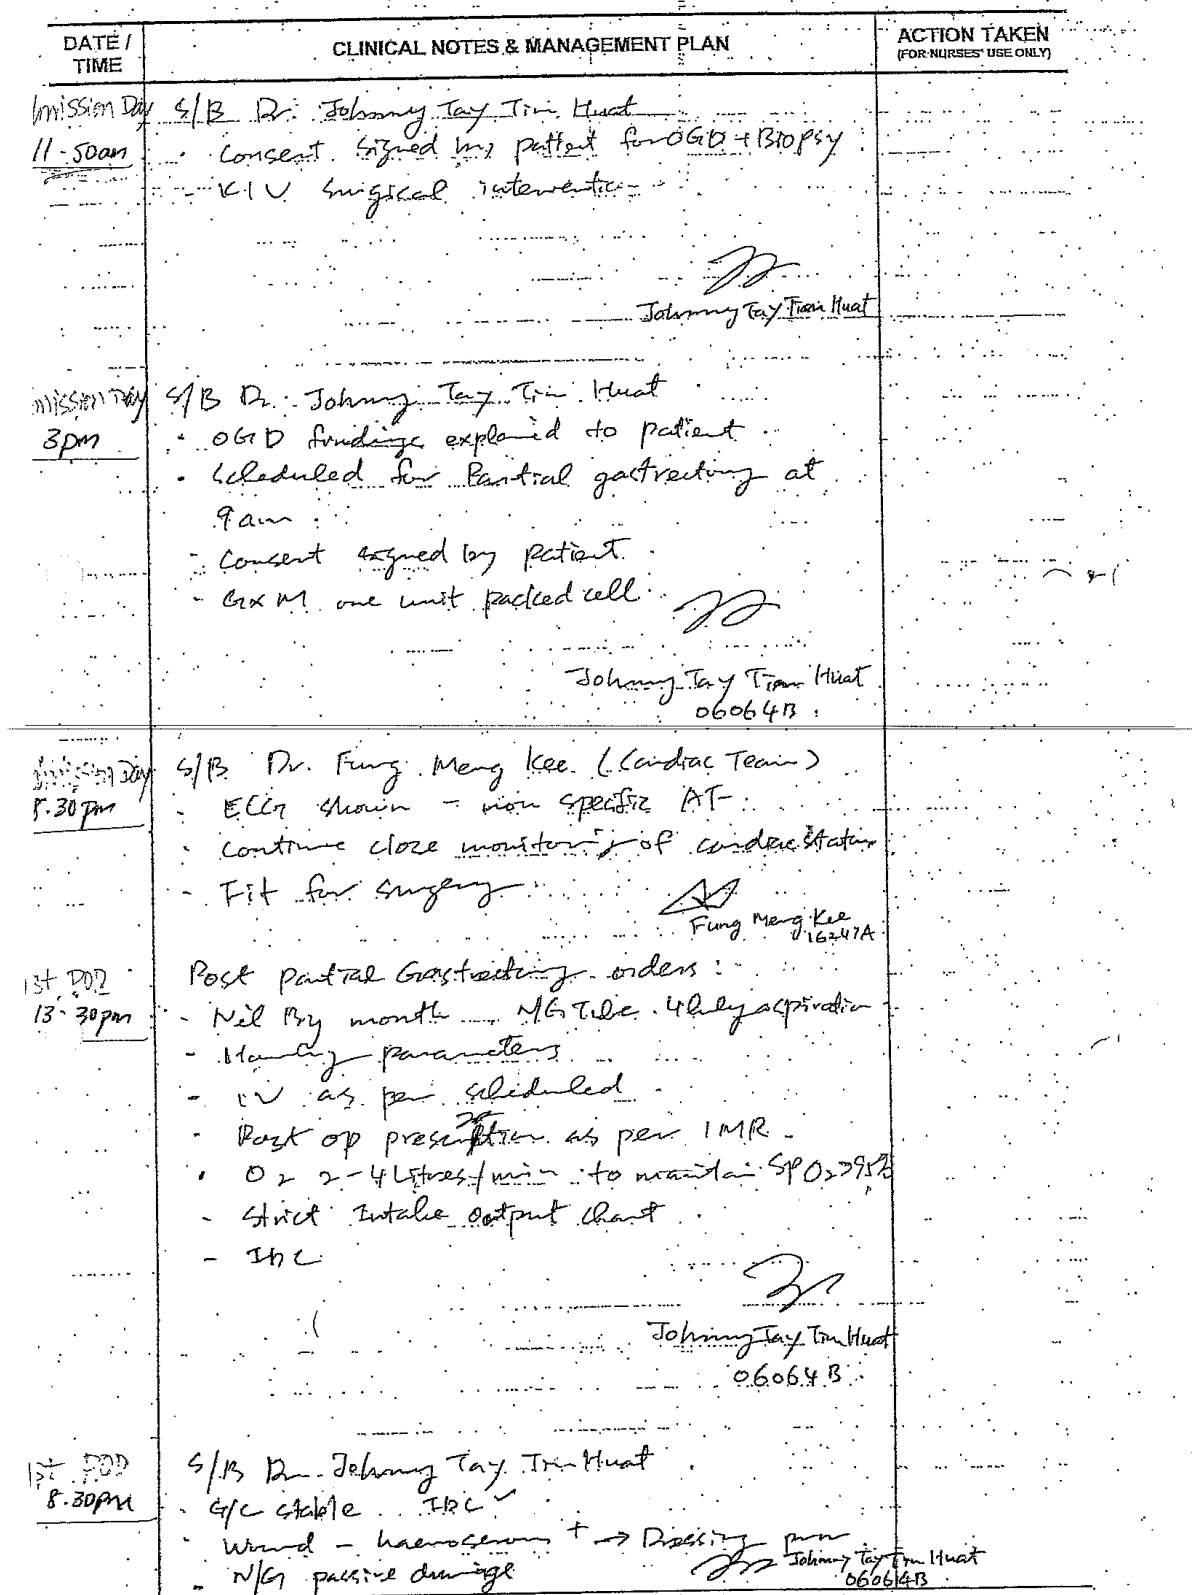 DATE / TIME
CLINICAL NOTES & MANAGEMENT PLAN
ACTION TAKEN
(FOR NURSES' USE ONLY)
mission Day S/B Dr. Johnny Tay Tian Huat
11-50am - Consent signed by patient for OGD + Biopsy
- KIV surgical intervention
Johnny Tay Tian Huat
mission Day S/B Dr. Johnny Tay Tian Huat
3pm - OGD findings explained to patient
- Scheduled for Partial gastrectomy at
9am
- Consent signed by patient
- GXM one unit packed cell
Johnny Tay Tian Huat
06064B
Day S/B Dr. Fung Meng Kee (Cardiac Team)
.30pm - ECG shown - non specific AF
- Continue close monitoring of cardiac status
- Fit for surgery
Fung Meng Kee
16247A
1st POD Post partial Gastrectomy orders:
13-30pm - Nil By mouth N/G Tube 4hrly aspiration
- Hourly parameters
- IV as per scheduled
- Post op prescription as per IMR
- O2 2-4 Litres/min to maintain SPO2>95%
- Strict Intake output chart
- IDC
Johnny Tay Tian Huat
06064B
1st POD S/B Dr. Johnny Tay Tian Huat
8.30pm - G/C stable IDC ✓
- Wound - haemoserous + → Dressing prn
- N/G passive drainage
Johnny Tay Tian Huat
06064B